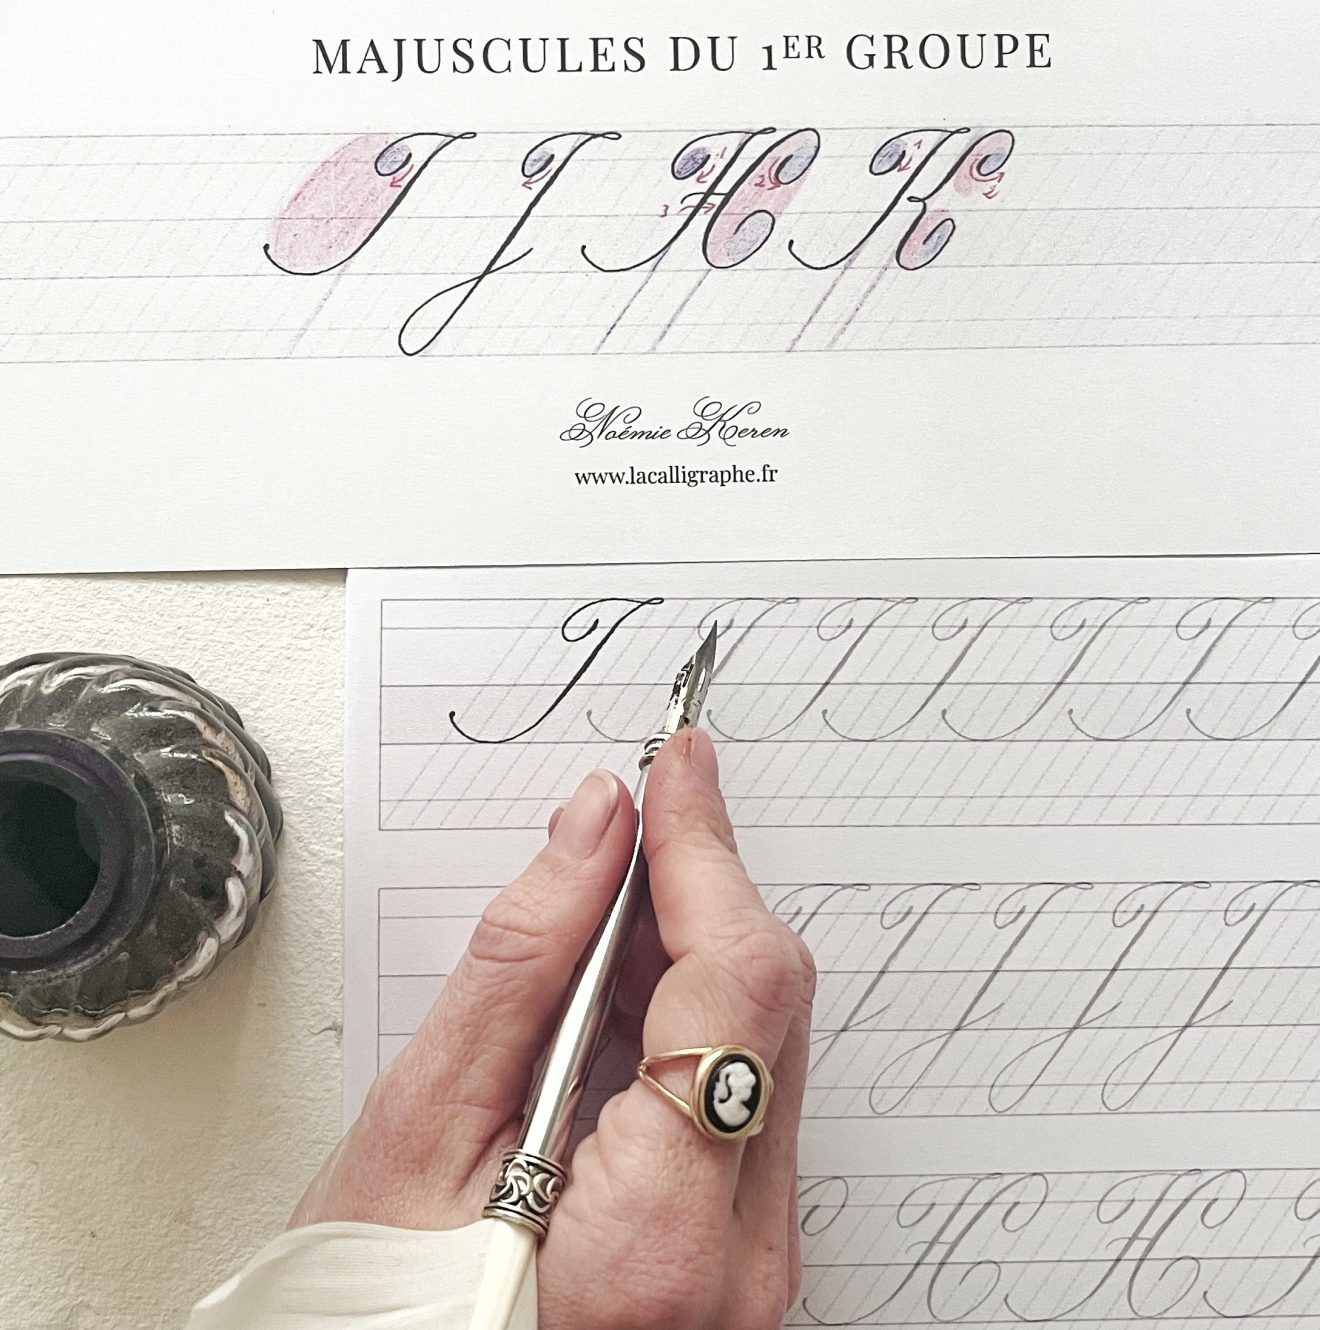 MAJUSCULES DU 1ER GROUPE
I J H K
Noémie Keren
www.lacalligraphe.fr
I I I I I I I
J J J J J
H H